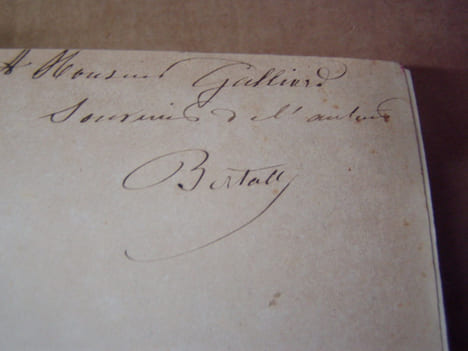 A Monsieur Galliard
Souvenir de l'auteur
Bertall